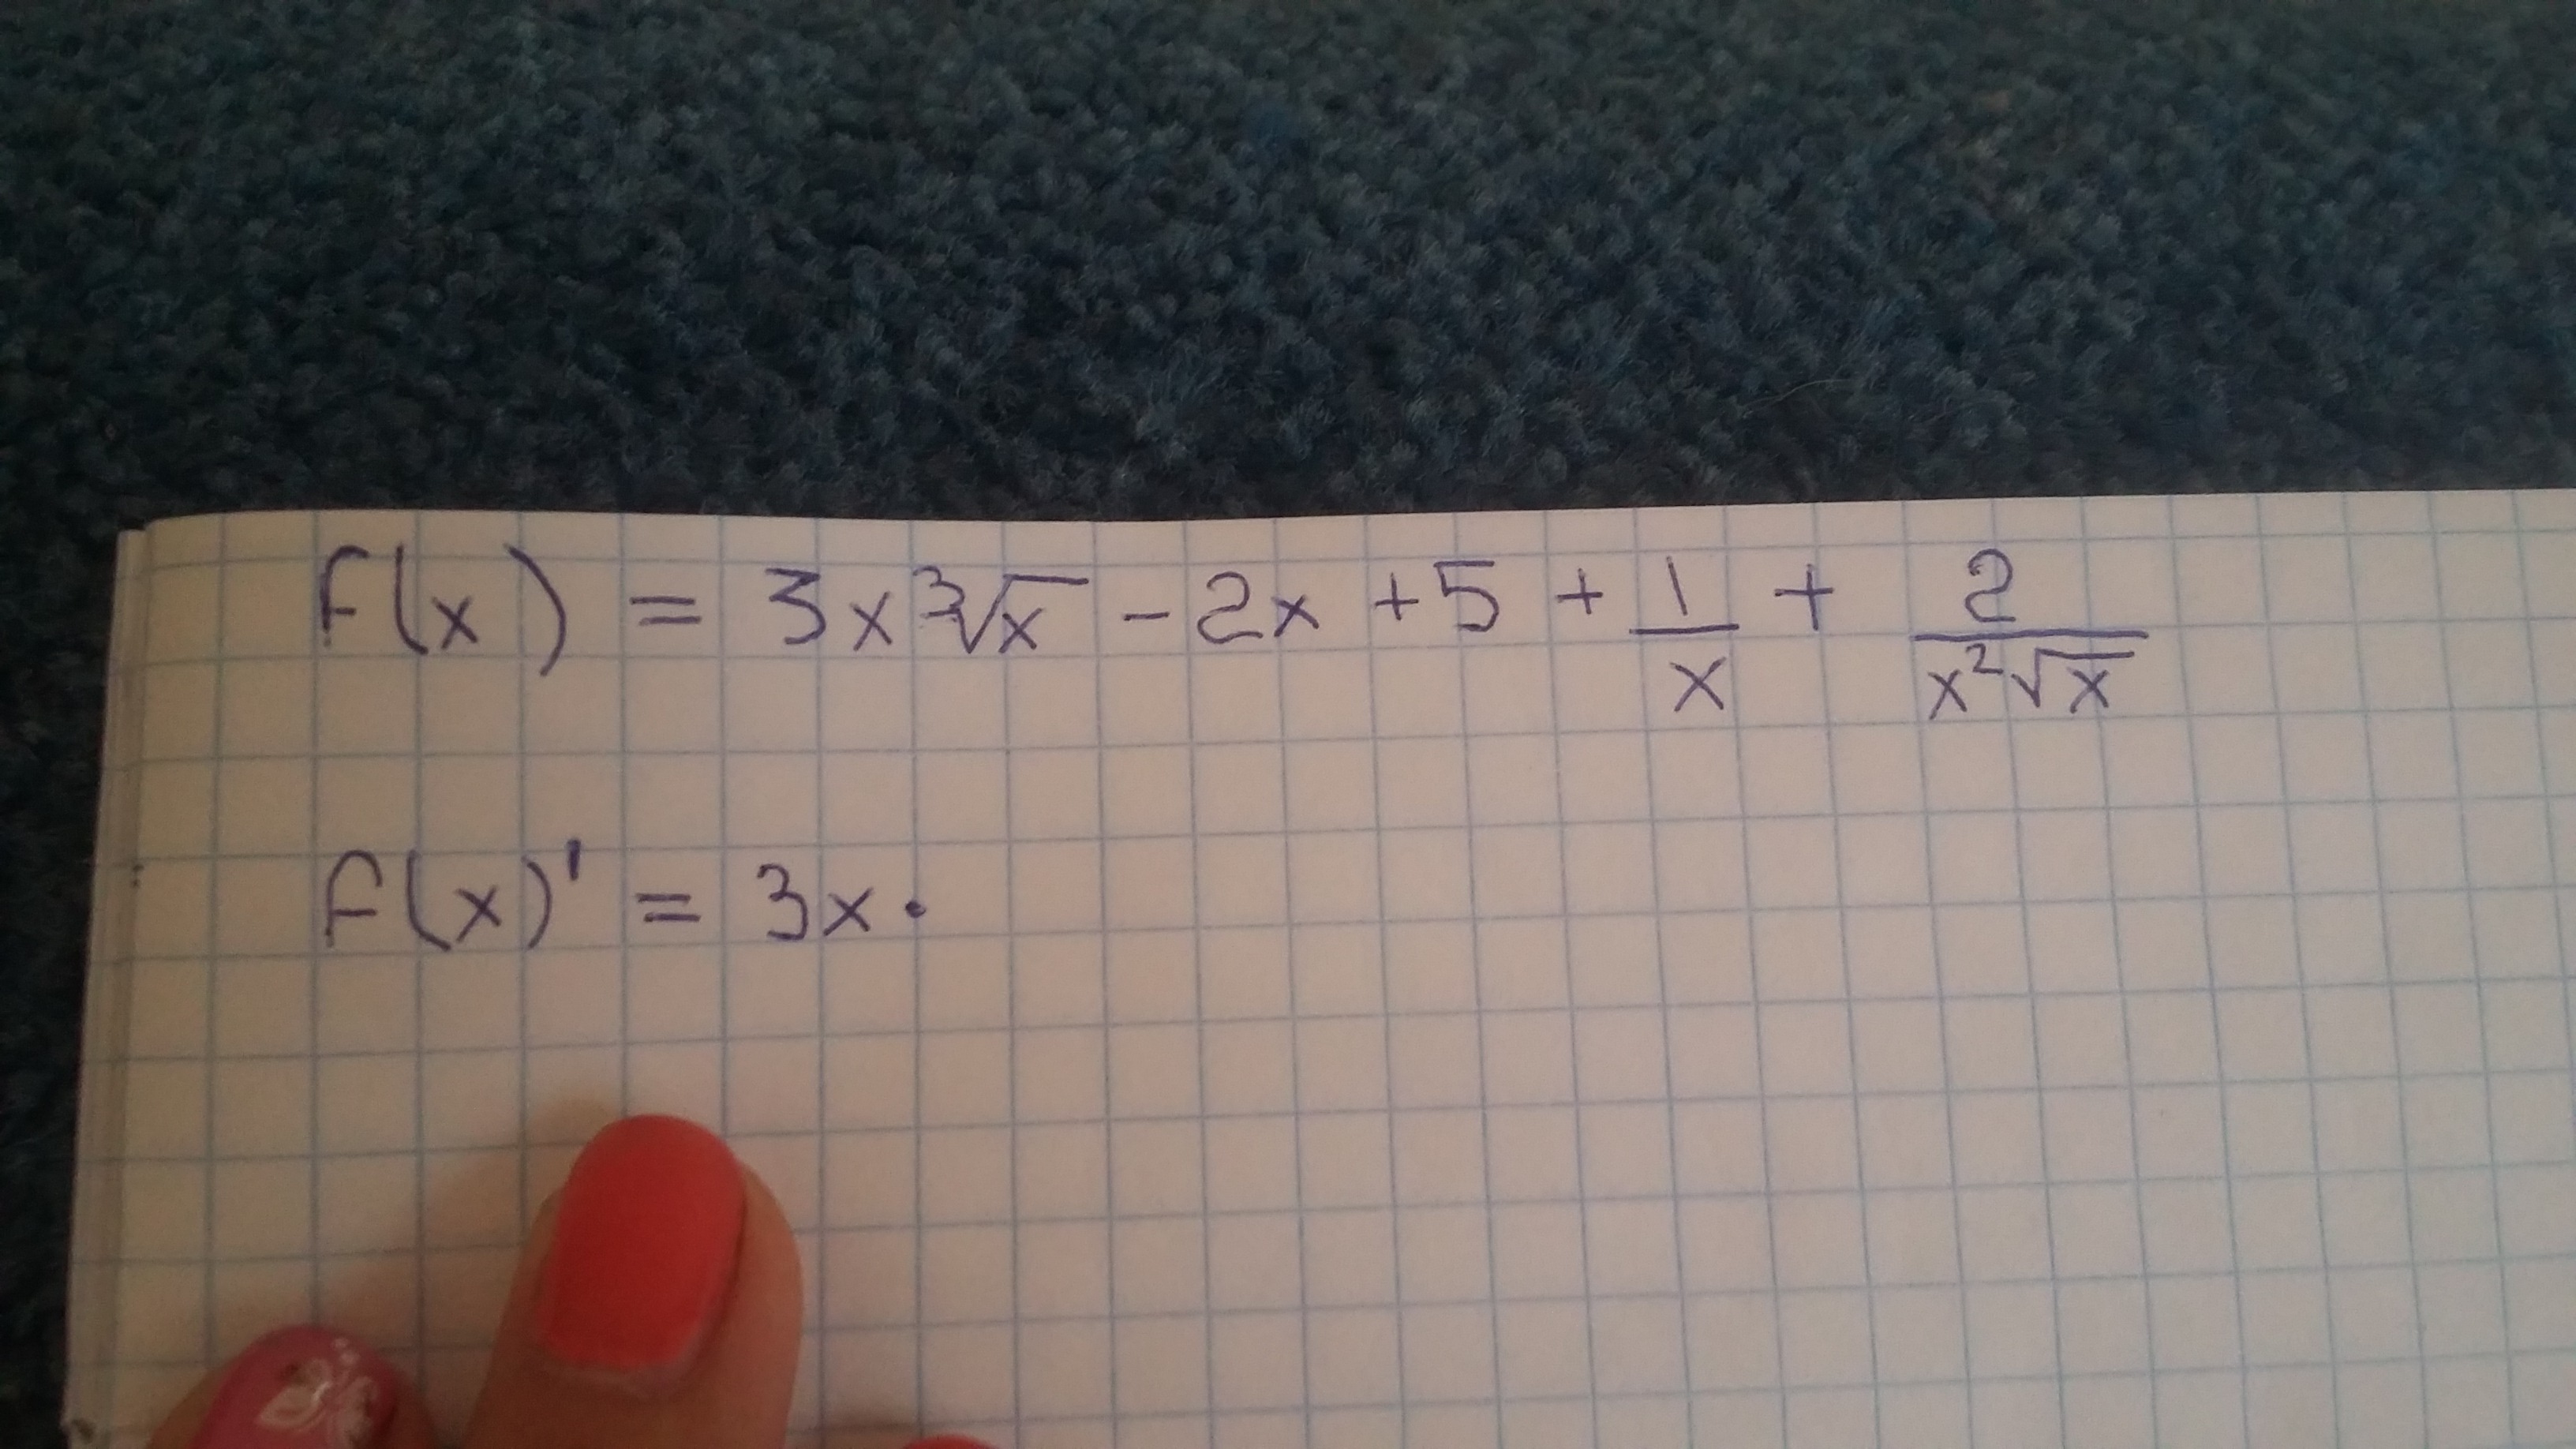 f(x) = 3x∛x - 2x + 5 + 1/x + 2/(x²√x)
f(x)' = 3x·